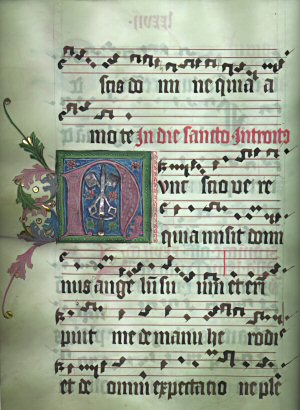 scis do mi ne quia a
mo te In die sancto Introit9
Nunc scio ve re
quia misit domi
nus ange lū su um et eri
puit me de manu he rodi
et de omni expectacio ne ple